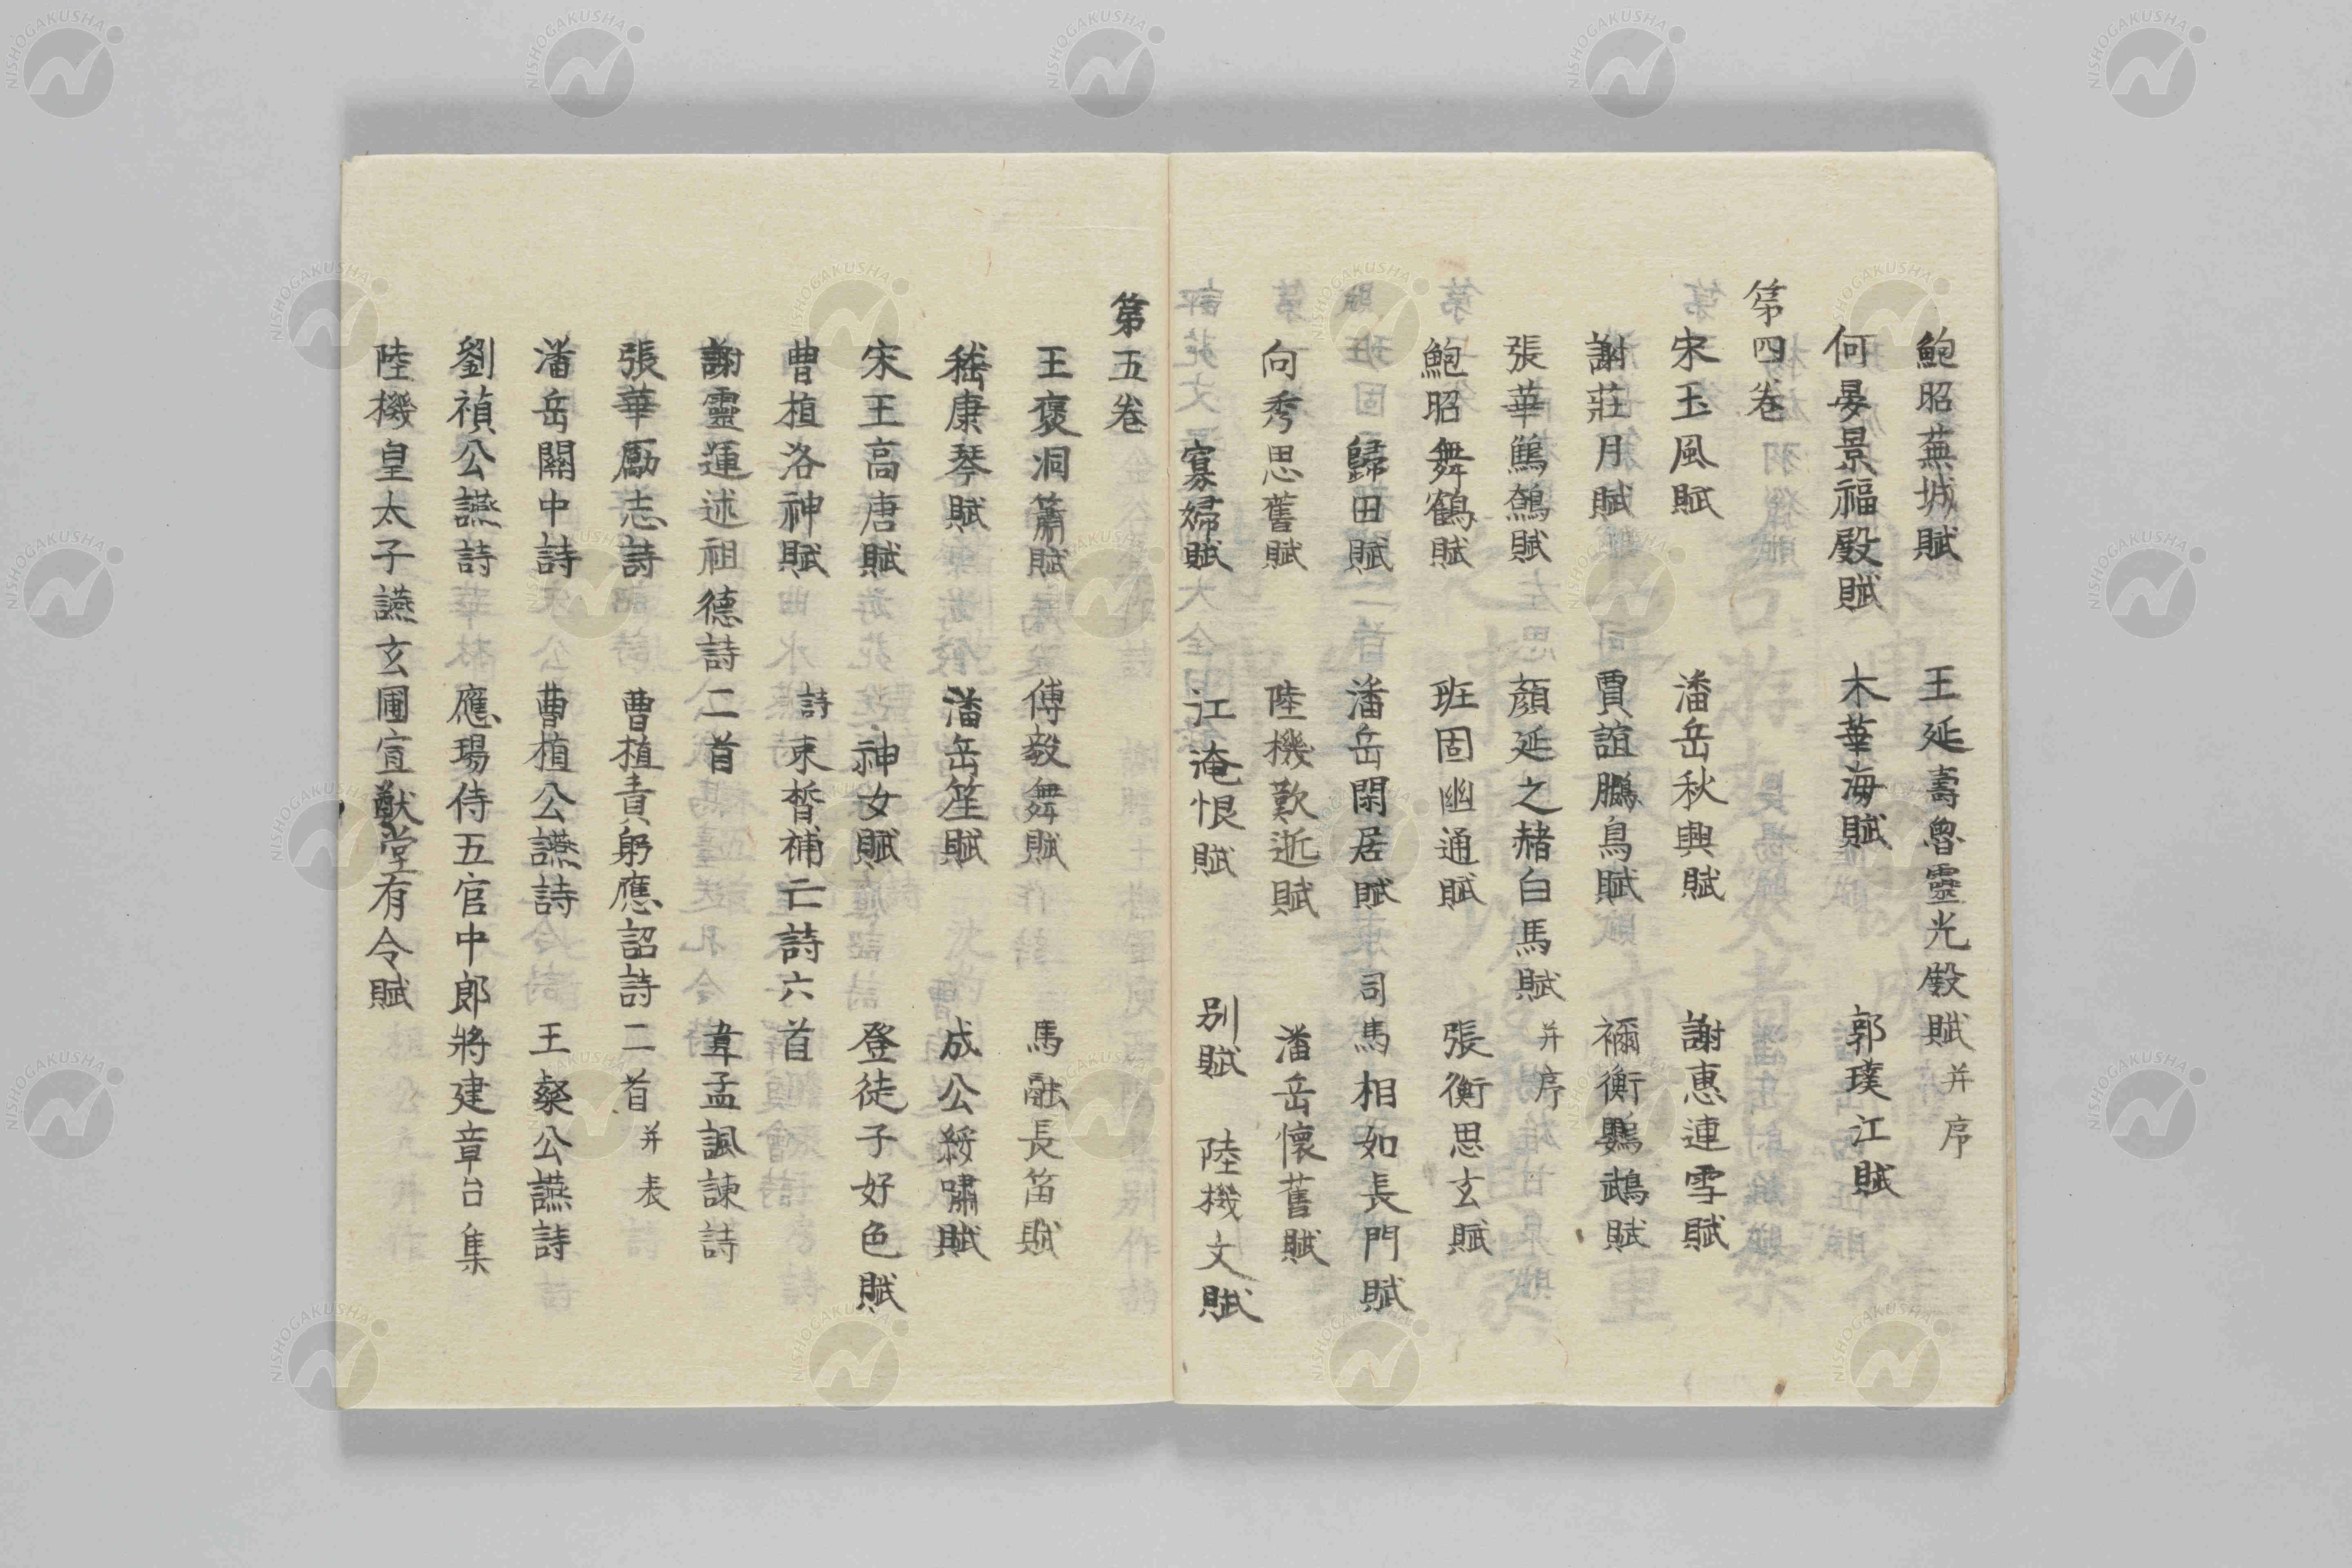 鮑昭蕪城賦　王延壽魯靈光殿賦并序
何晏景福殿賦　木華海賦　郭璞江賦
第四卷
宋玉風賦　潘岳秋興賦　謝惠連雪賦
謝莊月賦　賈誼鵩鳥賦　禰衡鸚鵡賦
張華鷦鷯賦　顔延之赭白馬賦并序
鮑昭舞鶴賦　班固幽通賦　張衡思玄賦
歸田賦　潘岳閑居賦　司馬相如長門賦
向秀思舊賦　陸機歎逝賦　潘岳懷舊賦
寡婦賦　江淹恨賦　別賦　陸機文賦
第五卷
王褒洞簫賦　傅毅舞賦　馬融長笛賦
嵇康琴賦　潘岳笙賦　成公綏嘯賦
宋王高唐賦　神女賦　登徒子好色賦
曹植洛神賦　詩　束皙補亡詩六首
謝靈運述祖德詩二首　韋孟諷諫詩
張華勵志詩　曹植責躬應詔詩二首并表
潘岳關中詩　曹植公讌詩　王粲公讌詩
劉禎公讌詩　應瑒侍五官中郎將建章台集
陸機皇太子讌玄圃宣猷堂有令賦
NISHOGAKUSHA